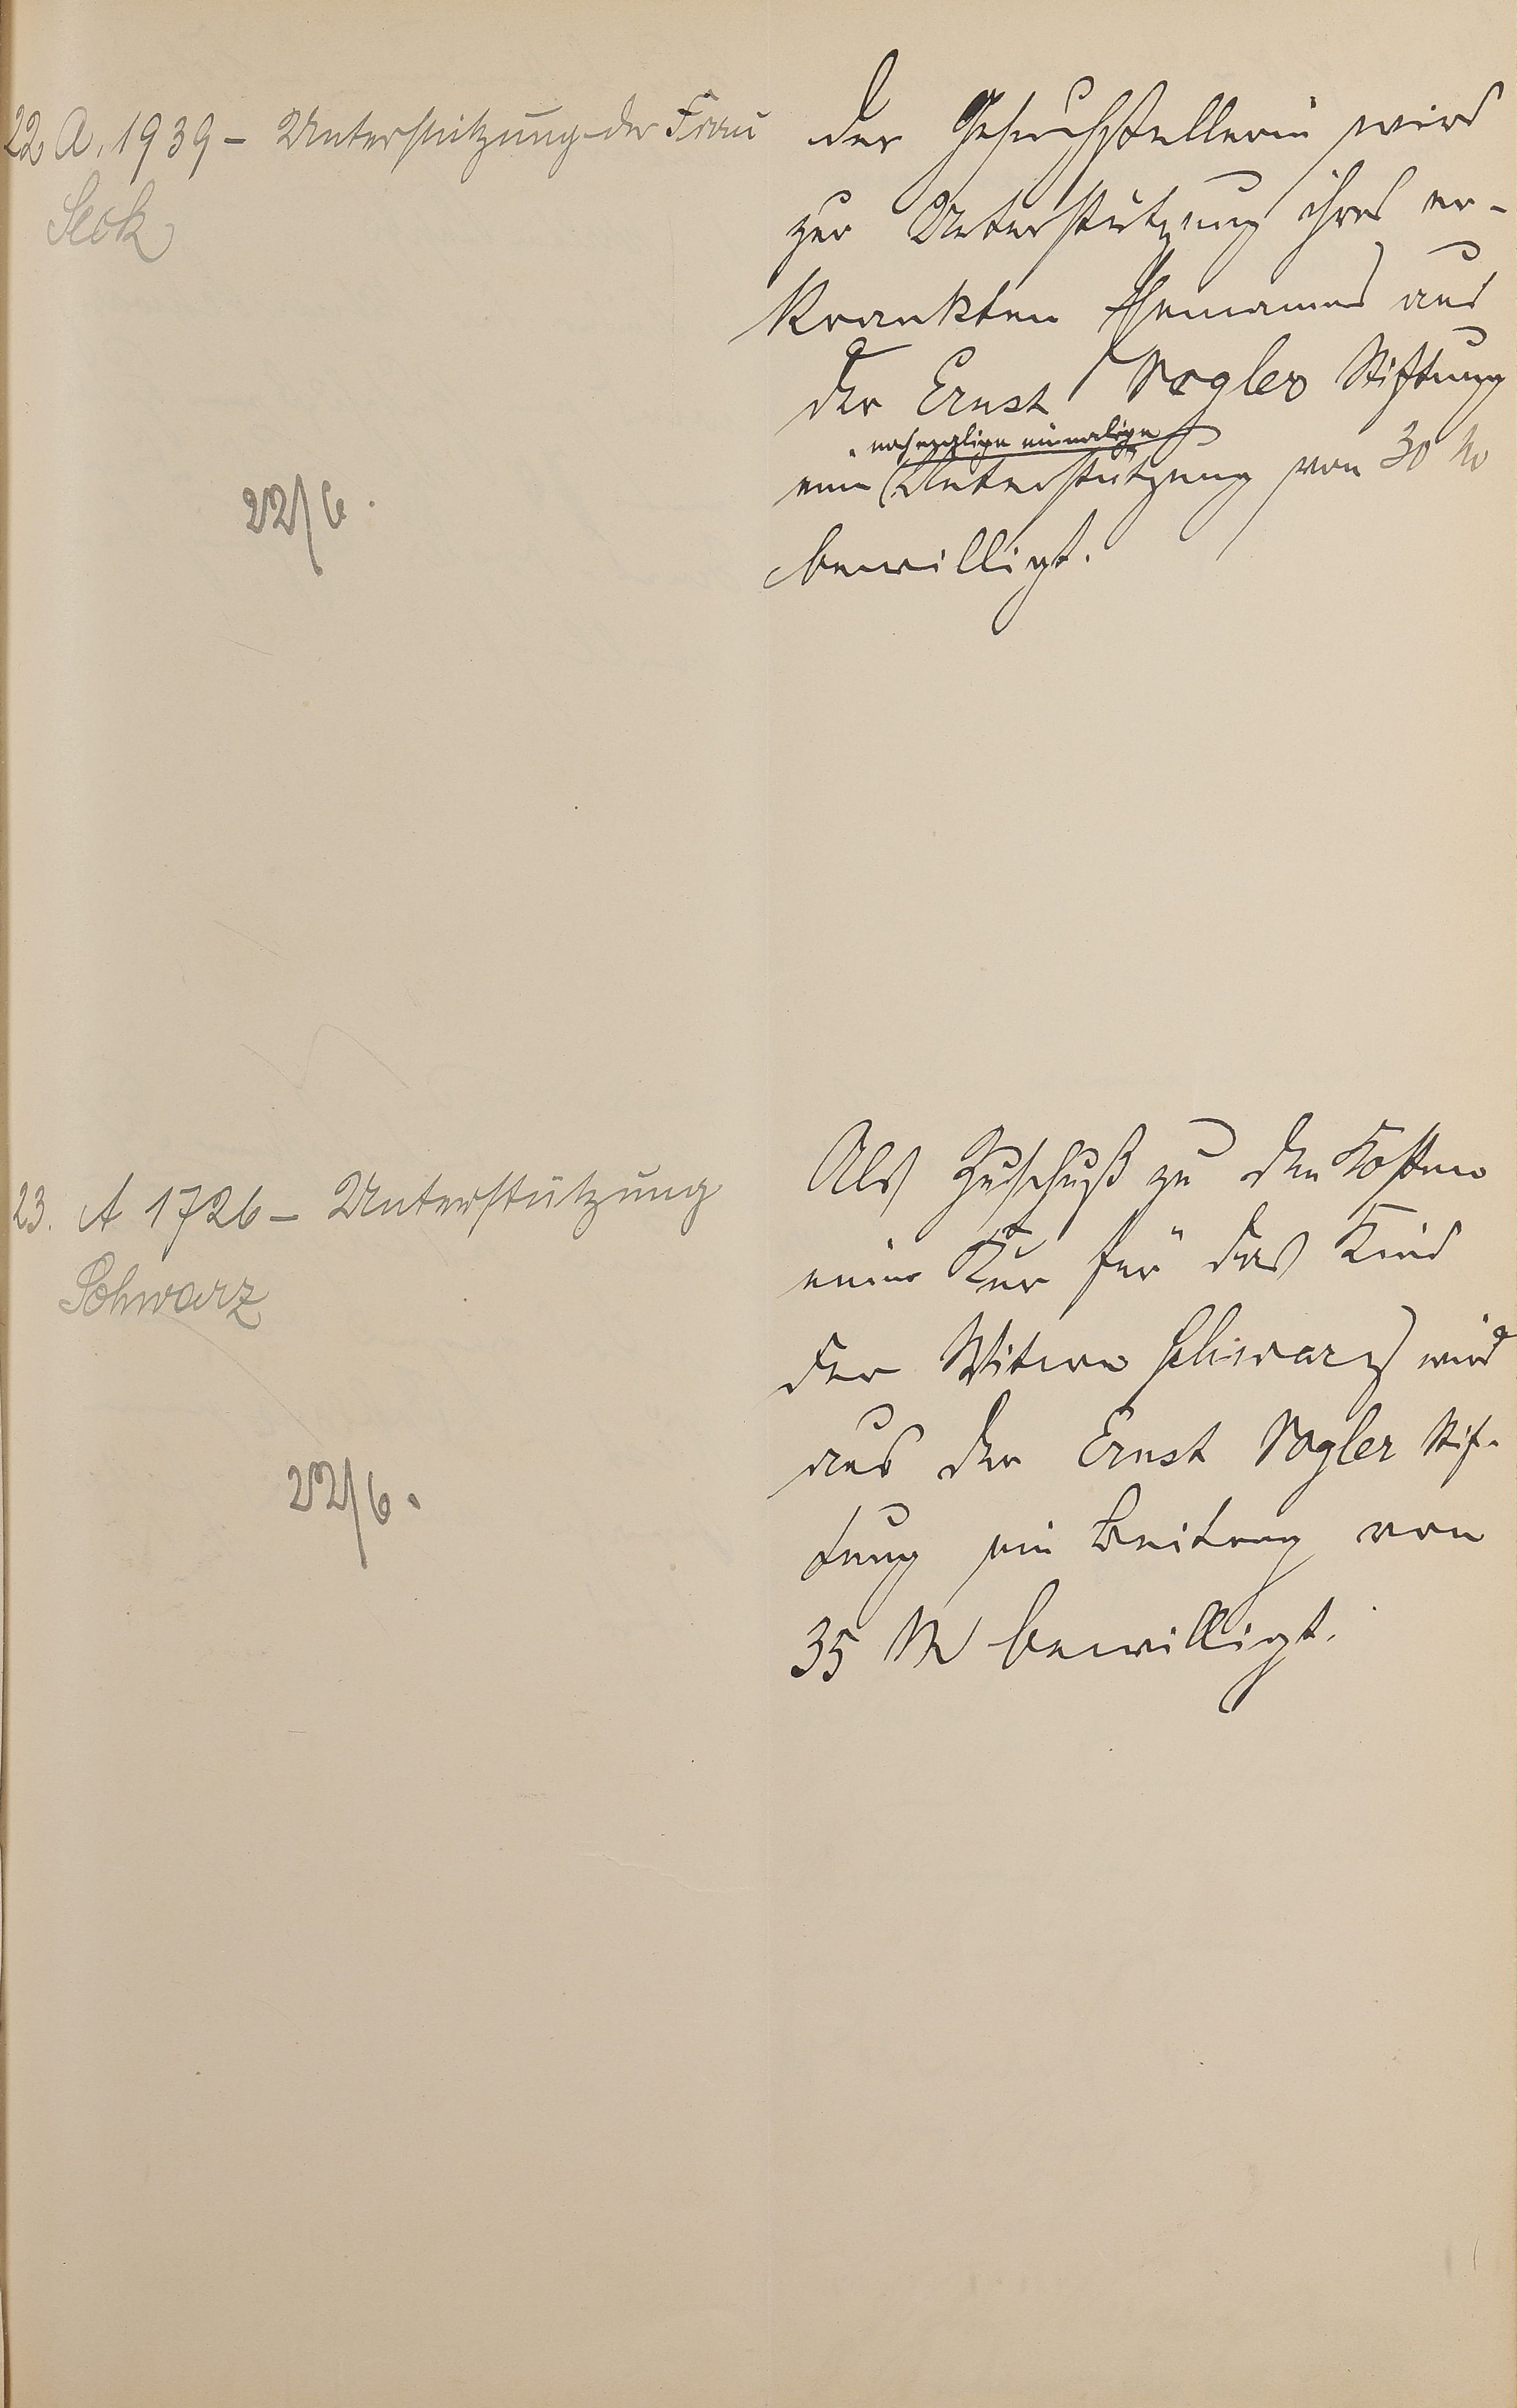 22 A. 1939 - Unterstützung der Frau
Seck
22/6.
Der Gesuchstellerin wird
zur Unterstützung ihres er-
krankten Ehemannes aus
der Ernst Vogler Stiftung
nochmalige einmalige
eine Unterstützung von 30 M
bewilligt.
23. A 1726 - Unterstützung
Schwarz
22/6.
Als Zuschuß zu den Kosten
einer Kur für das Kind
der Witwe Schwarz wird
aus der Ernst Vogler Stif-
tung ein Beitrag von
35 M bewilligt.